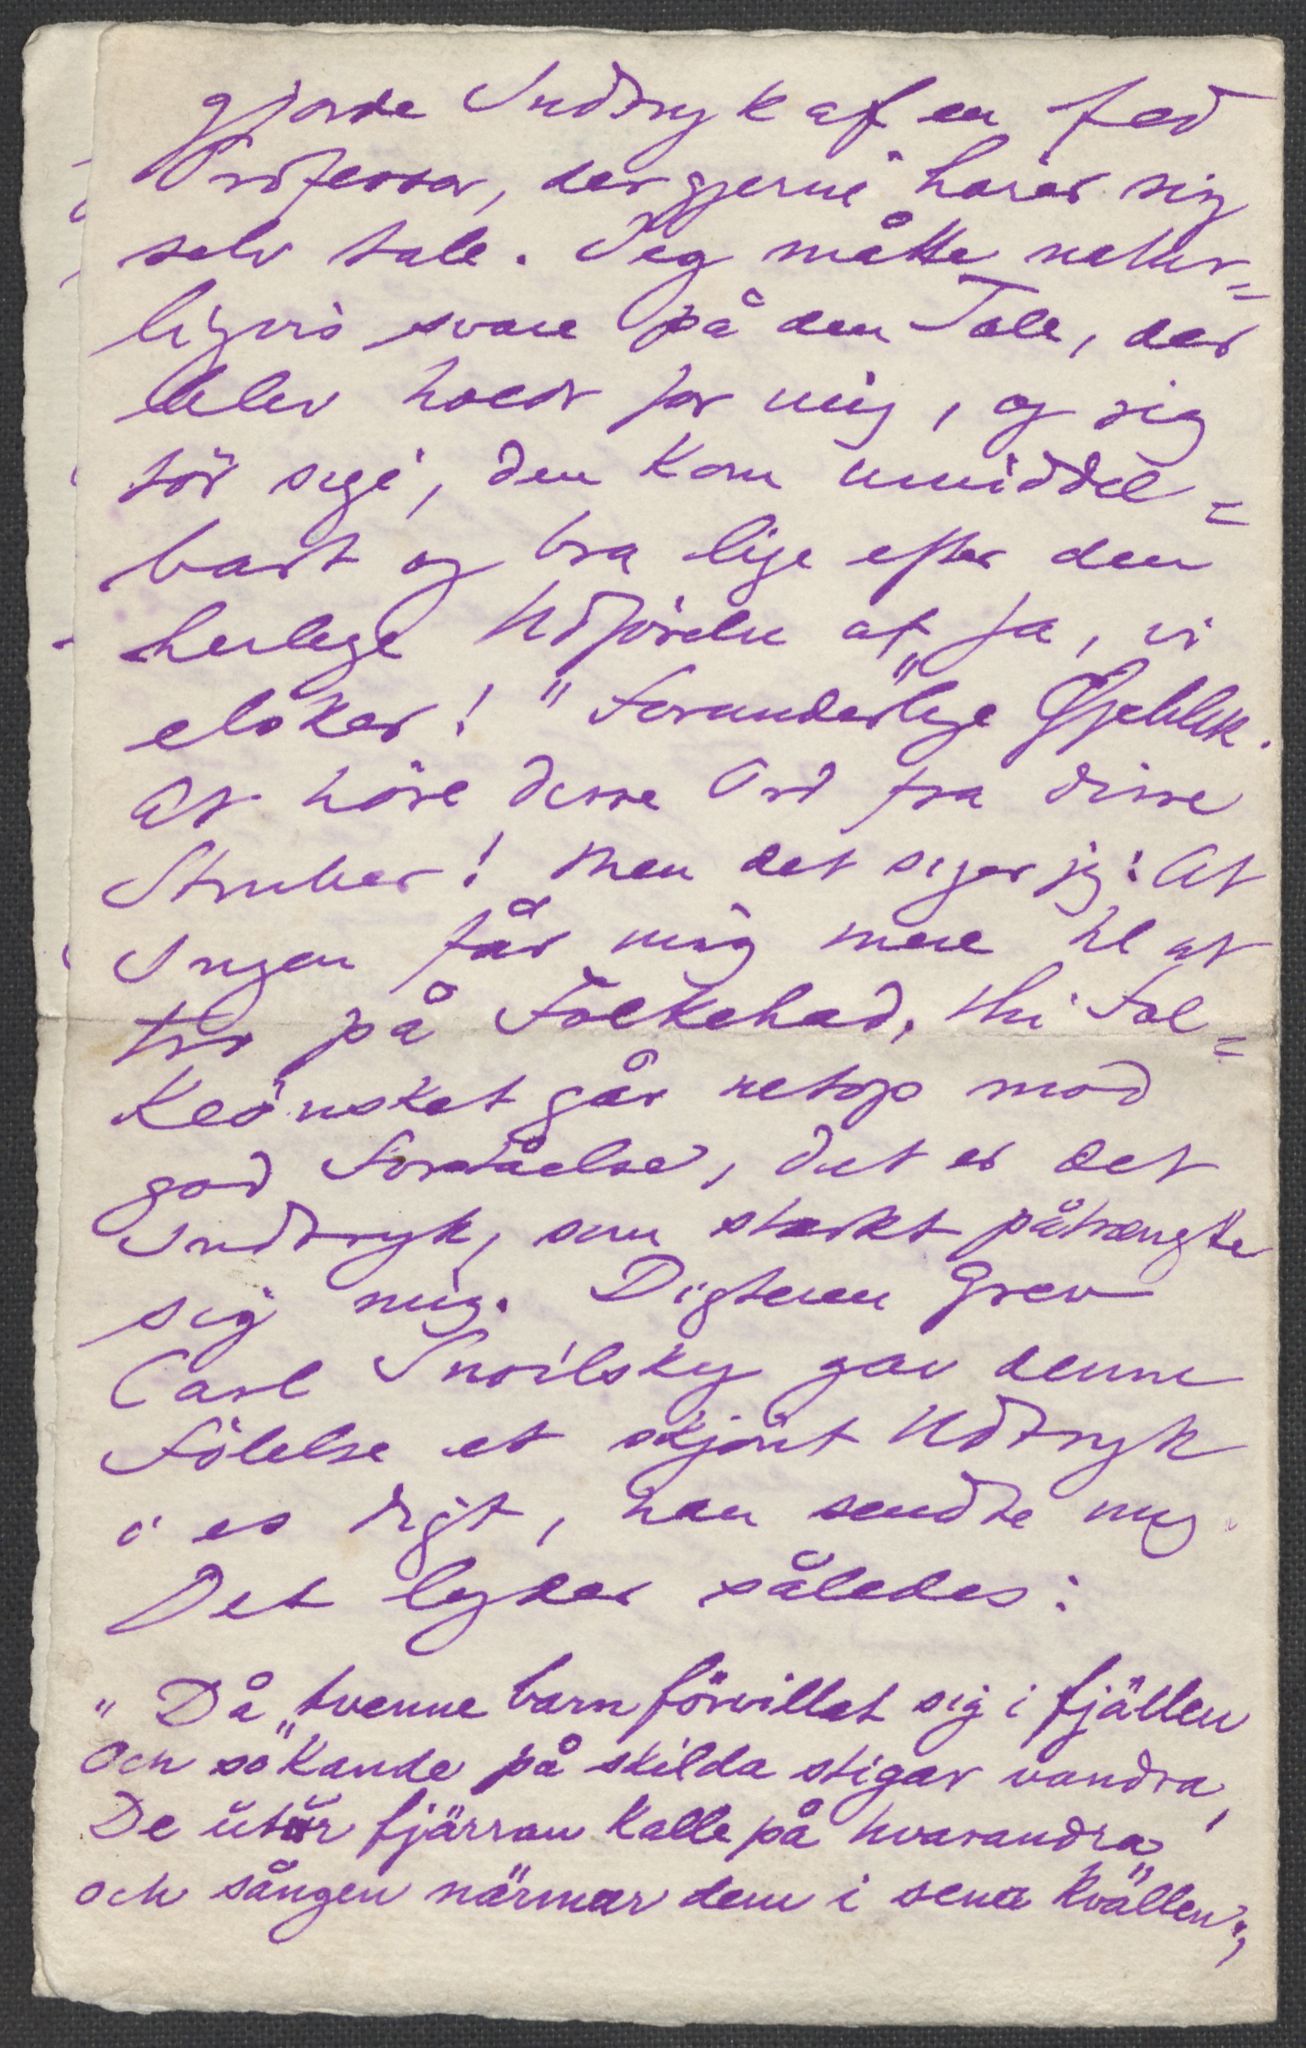 gjorde Indtryk af en fed
Professor, der gjerne hører sig
selv tale. Jeg måtte natur=
ligvis svare på den Tale, der
blev holdt for mig, og jeg
tör sige, den kom umiddel=
bart og bra lige efter den
herlige Udförelse af „Ja, vi
elsker!" Forunderlige Øjeblik.
At höre disse Ord fra disse
Struber! Men det siger jeg: At
Ingen får mig mere til at
tro på Folkehad, thi Fol=
keönsket går netop mod
god Forståelse, det er det
Indtryk, som stærkt påtrængte
sig mig. Digteren Grev
Carl Snoilsky gav denne
Fölelse et skjönt Udtryk
i et digt, han sendte mig.
Det lyder således:
„Då tvenne barn förvillat sig i fjällen
Och sökande på skilda stigar vandra,
De utur fjärran kalla på hvarandra
och sången närmar dem i sena kvällen;